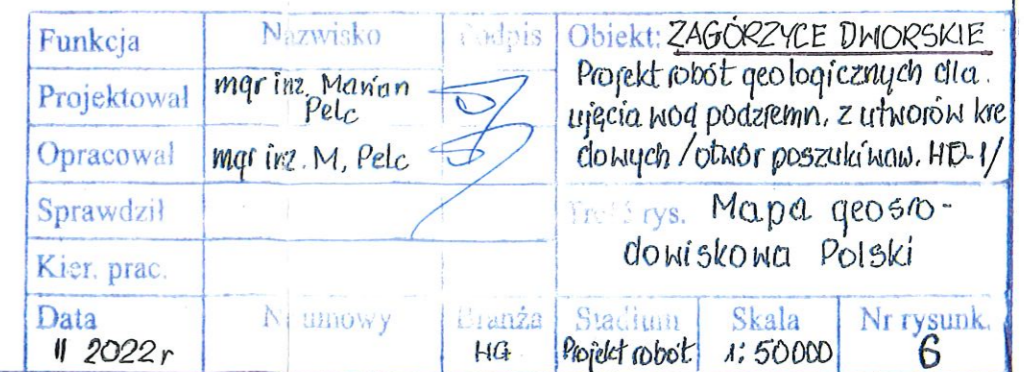 Funkcja Nazwisko Podpis Obiekt: ZAGÓRZYCE DWORSKIE
Projektował mgr inż. Marian Pelc
Projekt robót geologicznych dla
ujęcia wod podziemn. z utworów kre
dowych /otwór poszukiwaw. HD-1/
Opracował mgr inż. M, Pelc
Sprawdził
Treść rys. Mapa geośro-
dowiskowa Polski
Kier. prac.
Data Nr umowy Branża Stadium Skala Nr rysunk.
II 2022r HG Projekt robót 1:50000 6